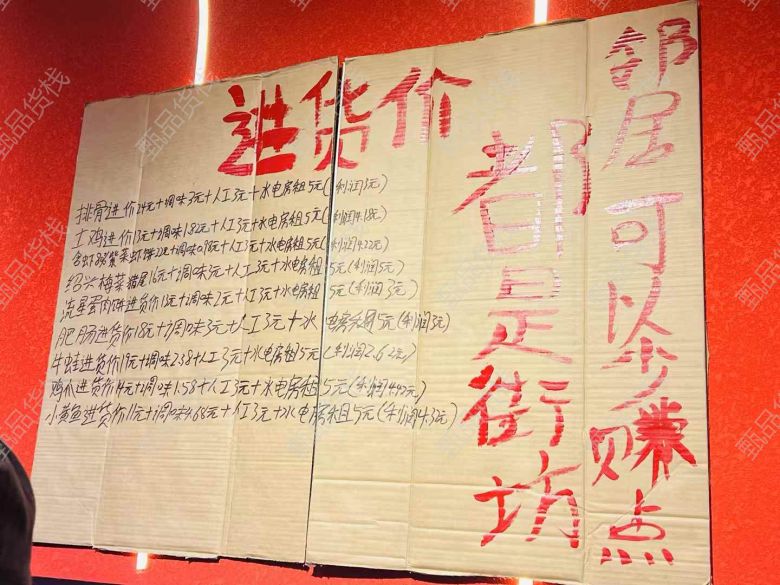 进货价
都是街坊
邻居可以少赚点
排骨进价24元+调味3元+人工3元+水电房租5元(利润3元)
土鸡进价13元+调味1.82元+人工3元+水电房租5元(利润4.18元)
虾饼22元+调味0.98元+人工3元+水电房租5元(利润4.22元)
绍兴梅菜猪尾16元+调味3元+人工3元+水电房租5元(利润5元)
流星蛋肉饼进货价13元+调味2元+人工3元+水电房租5元(利润3元)
肥肠进货价18元+调味3元+人工3元+水电房租5元(利润3元)
牛蛙进货价19元+调味2.38+人工3元+水电房租5元(利润2.62元)
鸡爪进货价14元+调味1.58+人工3元+水电房租5元(利润4.42元)
小黄鱼进货价11元+调味4.68元+人工3元+水电房租5元(利润4.32元)
甄品货栈